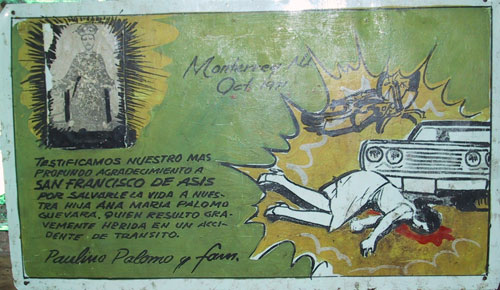 Monterrey N.L.
Oct.
TESTIFICAMOS NUESTRO MAS
PROFUNDO AGRADECIMIENTO A
SAN FRANCISCO DE ASIS
POR SALVARLE LA VIDA A NUES-
TRA HNA ANA MARIA PALOMO
GUEVARA, QUIEN RESULTO GRA-
VEMENTE HERIDA EN UN ACCI-
DENTE DE TRANSITO.
Paulino Palomo y fam.